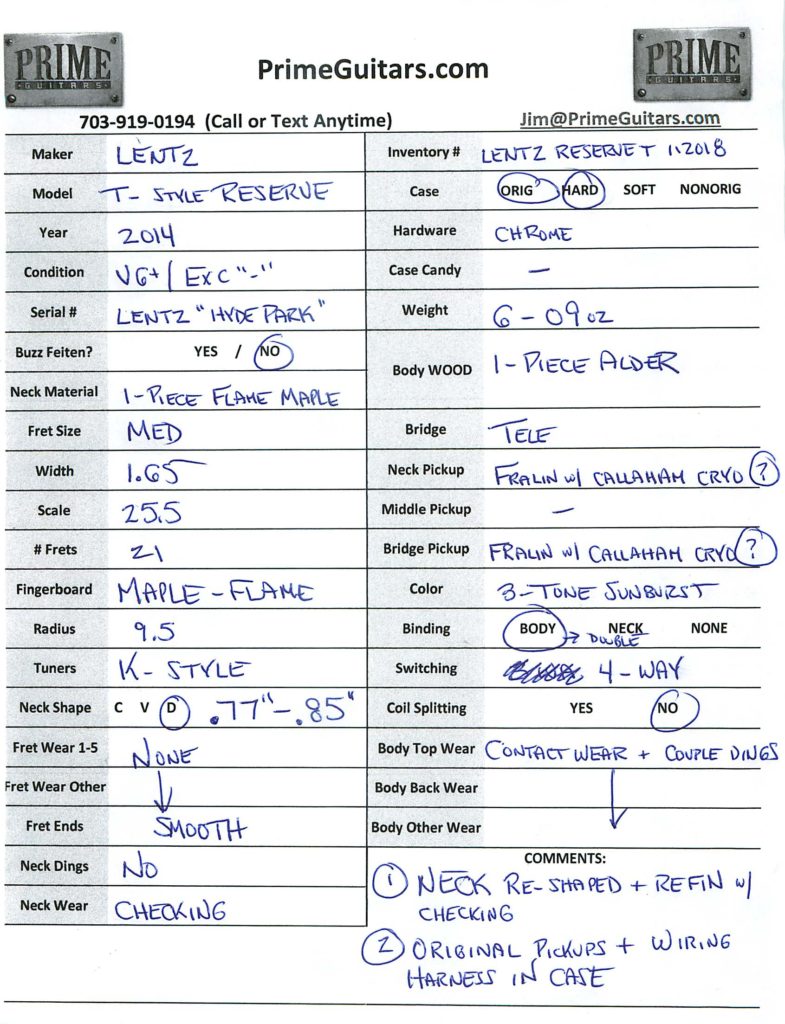 PRIME
GUITARS
PrimeGuitars.com
PRIME
GUITARS
703-919-0194 (Call or Text Anytime)
Jim@PrimeGuitars.com
Maker LENTZ
Model T- STYLE RESERVE
Year 2014
Condition VG+ / EXC "-"
Serial # LENTZ "HYDE PARK"
Buzz Feiten? YES / NO
Neck Material 1-PIECE FLAME MAPLE
Fret Size MED
Width 1.65
Scale 25.5
# Frets 21
Fingerboard MAPLE - FLAME
Radius 9.5
Tuners K- STYLE
Neck Shape C V D .77"-.85"
Fret Wear 1-5 NONE
Fret Wear Other
Fret Ends SMOOTH
Neck Dings NO
Neck Wear CHECKING
Inventory # LENTZ RESERVE T 1.2018
Case ORIG HARD SOFT NONORIG
Hardware CHROME
Case Candy —
Weight 6 - 09 oz
Body WOOD 1-PIECE ALDER
Bridge TELE
Neck Pickup FRALIN W/ CALLAHAM CRYO ?
Middle Pickup —
Bridge Pickup FRALIN W/ CALLAHAM CRYO ?
Color 3-TONE SUNBURST
Binding BODY NECK NONE
→ DOUBLE
Switching 4-WAY
Coil Splitting YES NO
Body Top Wear CONTACT WEAR + COUPLE DINGS
Body Back Wear
Body Other Wear
COMMENTS:
1 NECK RE-SHAPED + REFIN W/
CHECKING
2 ORIGINAL PICKUPS + WIRING
HARNESS IN CASE